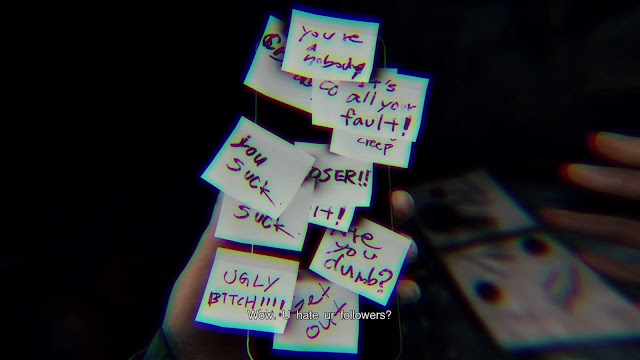 you're
a
nobody
it's
all your
fault!
creep
you
suck.
OSER!!
suck.
IT!
you
dumb?
UGLY
BITCH!!!!
out
Wow. U hate ur followers?